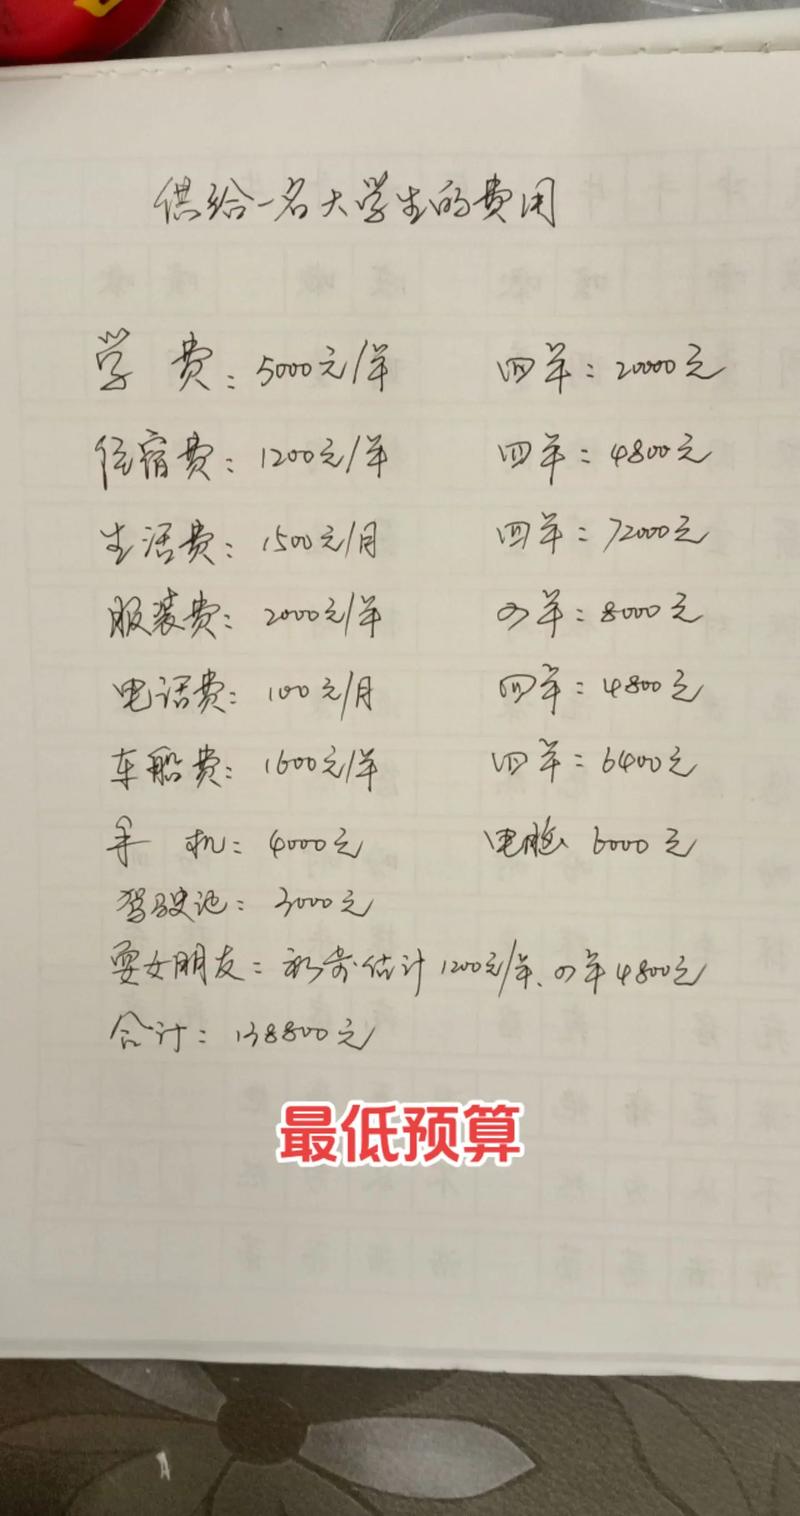 供给一名大学生的费用
学费：5000元/年 四年：20000元
住宿费：1200元/年 四年：4800元
生活费：1500元/月 四年：72000元
服装费：2000元/年 四年：8000元
电话费：100元/月 四年：4800元
车船费：1600元/年 四年：6400元
手机：4000元 电脑 6000元
驾驶证：3000元
耍女朋友：估计1200元/年、四年4800元
合计：138800元
最低预算